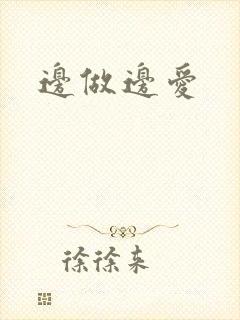 邊做邊愛
徐徐来